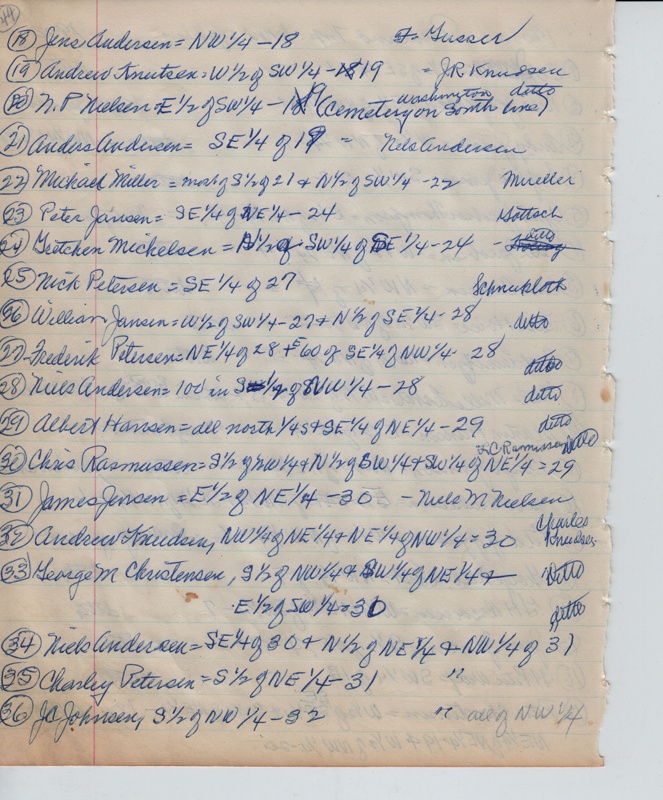 44
(18) Jens Andersen = NW 1/4 - 18 F. Gusser
(19) Andrew Knutsen = W 1/2 of SW 1/4 - 19 = J R Knudsen
(20) N. P Nielsen = E 1/2 of SW 1/4 - 19 (Cemetery on South line) Washington ditto
(21) Anders Andersen = SE 1/4 of 19 = Nels Andersen
(22) Michael Miller = most of S 1/2 of 21 & N 1/2 of SW 1/4 - 22 Mueller
(23) Peter Jansen = SE 1/4 of NE 1/4 - 24 Gottsch
(24) Gretchen Mickelsen = N 1/2 of SW 1/4 of SE 1/4 - 24 - ditto
(25) Nick Petersen = SE 1/4 of 27 Schnukloth
(26) William Jansen = W 1/2 of SW 1/4 - 27 & N 1/2 of SE 1/4 - 28 ditto
(27) Frederik Petersen = NE 1/4 of 28 & E 60 of SE 1/4 of NW 1/4 - 28 ditto
(28) Niels Andersen = 100 in of NW 1/4 - 28 ditto
(29) Albert Hansen = all north 1/4s & SE 1/4 of NE 1/4 - 29 ditto
(30) Chris Rasmussen = S 1/2 of NW 1/4 & N 1/2 of SW 1/4 & SW 1/4 of NE 1/4 = 29 C Rasmussen ditto
(31) James Jensen = E 1/2 of NE 1/4 - 30 - Niels M Nielsen
(32) Andrew Knudsen, NW 1/4 of NE 1/4 & NE 1/4 of NW 1/4 = 30 Charles Knudsen
(33) George M Christensen, S 1/2 of NW 1/4 & SW 1/4 of NE 1/4 & Ditto
E 1/2 of SW 1/4 = 30 ditto
(34) Niels Andersen = SE 1/4 of 30 & N 1/2 of NE 1/4 & NW 1/4 of 31
(35) Charley Petersen = S 1/2 of NE 1/4 - 31 "
(36) JC Johnsen, S 1/2 of NW 1/4 - 32 " all of NW 1/4